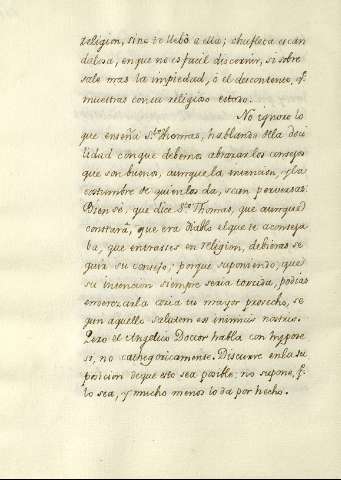 religion, sino te llebò a ella; chufleta escan
dalosa, en que no es facil discernir, si sobre
sale mas la impiedad, ó el descontento, q.e
muestras con tu religioso estado.
No ignoro lo
que enseña S.to Thomas, hablando de la doci
lidad con que debemos abrazar los consejos
que son buenos, aunque la intencion, y la
costumbre de quien los da, sean perversas.
Bien sé, que dice S.to Thomas, que aunque
constara, que era diablo el que te aconseja
ba, que entrasses en religion, debieras se
guir su consejo; porque suponiendo, que
su intencion siempre seria torcida, podias
enderezarla acia tu mayor provecho, se
gun aquello salutem ex inimicis nostris.
Pero el Angelico Doctor habla con hyppote
si, no cathegoricamente. Discurre en la su
posicion de que esto sea posible: no supone, q.e
lo sea, y mucho menos lo da por hecho.